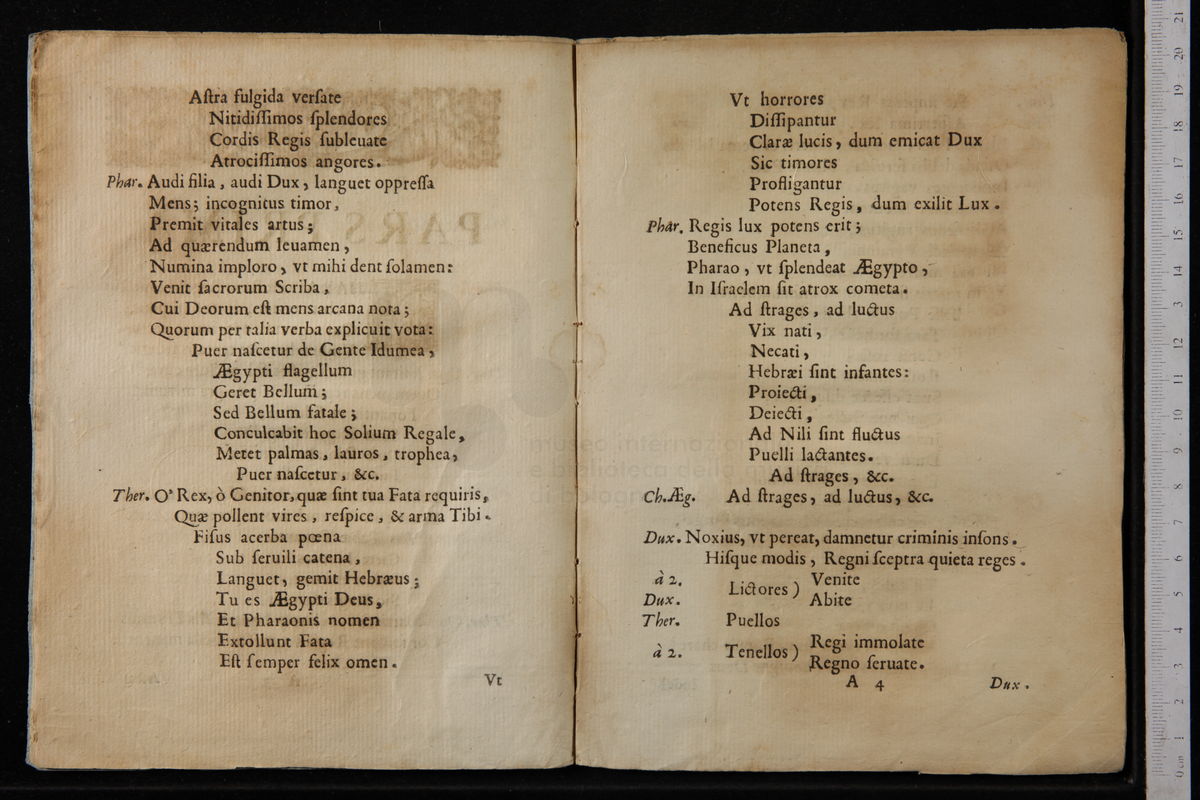 Aſtra fulgida verſate
Nitidiſſimos ſplendores
Cordis Regis ſubleuate
Atrociſſimos angores.
Phar. Audi filia, audi Dux, languet oppreſſa
Mens; incognitus timor,
Premit vitales artus;
Ad quærendum leuamen,
Numina imploro, vt mihi dent ſolamen:
Venit ſacrorum Scriba,
Cui Deorum eſt mens arcana nota;
Quorum per talia verba explicuit vota:
Puer naſcetur de Gente Idumea,
Ægypti flagellum
Geret Bellum;
Sed Bellum fatale;
Conculcabit hoc Solium Regale,
Metet palmas, lauros, trophea,
Puer naſcetur, &c.
Ther. O' Rex, ò Genitor, quæ ſint tua Fata requiris,
Quæ pollent vires, reſpice, & arma Tibi.
Fiſus acerba pœna
Sub ſeruili catena,
Languet, gemit Hebræus;
Tu es Ægypti Deus,
Et Pharaonis nomen
Extollunt Fata
Eſt ſemper felix omen.
Vt
Vt horrores
Diſſipantur
Claræ lucis, dum emicat Dux
Sic timores
Profligantur
Potens Regis, dum exilit Lux.
Phar. Regis lux potens erit;
Beneficus Planeta,
Pharao, vt ſplendeat Ægypto,
In Iſraelem ſit atrox cometa.
Ad ſtrages, ad luctus
Vix nati,
Necati,
Hebræi ſint infantes:
Proiecti,
Deiecti,
Ad Nili ſint fluctus
Puelli lactantes.
Ad ſtrages, &c.
Ch.Æg. Ad ſtrages, ad luctus, &c.
Dux. Noxius, vt pereat, damnetur criminis inſons.
Hiſque modis, Regni ſceptra quieta reges.
à 2. Lictores) Venite
Dux. Abite
Ther. Puellos
à 2. Tenellos) Regi immolate
Regno ſeruate.
A 4
Dux.